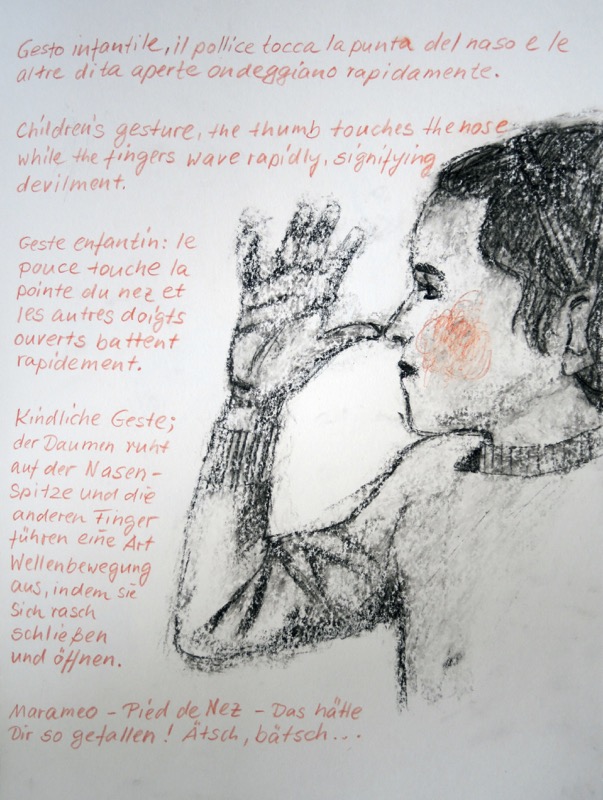 Gesto infantile, il pollice tocca la punta del naso e le
altre dita aperte ondeggiano rapidamente.
Children's gesture, the thumb touches the nose
while the fingers wave rapidly, signifying
devilment.
Geste enfantin: le
pouce touche la
pointe du nez et
les autres doigts
ouverts battent
rapidement.
Kindliche Geste;
der Daumen ruht
auf der Nasen-
Spitze und die
anderen Finger
führen eine Art
Wellenbewegung
aus, indem sie
Sich rasch
schließen
und öffnen.
Marameo - Pied de Nez - Das hätte
Dir so gefallen! Ätsch, bätsch...